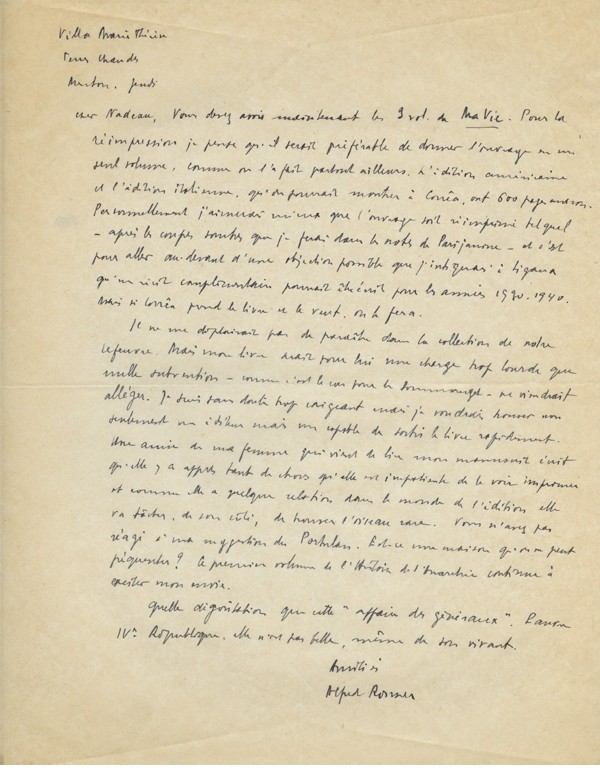 Villa Marie Thérèse
Terres Chaudes
Menton. Jeudi
cher Nadeau, Vous devez avoir maintenant les 3 vol. de Ma Vie. Pour la
réimpression je pense qu'il serait préférable de donner l'ouvrage en un
seul volume, comme on l'a fait partout ailleurs. L'édition américaine
et l'édition italienne, qu'on pourrait montrer à Corrêa, ont 600 pages environ.
Personnellement j'aimerais mieux que l'ouvrage soit réimprimé tel quel
- après les coupes sombres que je ferai dans les notes de Parijanine - et c'est
pour aller au-devant d'une objection possible que j'indiquais à
qu'un récit complémentaire pourrait être écrit pour les années 1930-1940.
Mais si Corrêa prend le livre et le veut, on le fera.
Il ne me déplairait pas de paraître dans la collection de notre
Lefeuvre. Mais mon livre serait pour lui une charge trop lourde que
nulle subvention - comme c'est le cas pour le Dommanget - ne viendrait
alléger. Je suis sans doute trop exigeant mais je voudrais trouver non
seulement un éditeur mais un capable de sortir le livre rapidement.
Une amie de ma femme qui vient de lire mon manuscrit écrit
qu'elle y a appris tant de choses qu'elle est impatiente de le voir imprimer
et comme elle a quelque relation dans le monde de l'édition elle
va tâcher, de son côté, de trouver l'oiseau rare. Vous n'avez pas
réagi à ma suggestion du Portulan. Est-ce une maison qu'on ne peut
fréquenter? Ce premier volume de l'Histoire de l'Anarchie continue à
exciter mon envie.
Quelle dégoûtation que cette "affaire des généraux".
IVe République, elle n'est pas belle, même de son vivant.
Amitiés
Alfred Rosmer